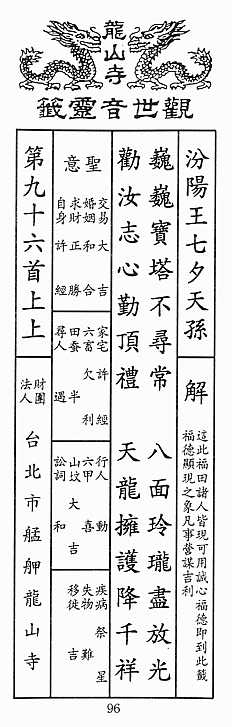 龍山寺
觀世音靈籤
汾陽王七夕天孫
解
這此福田諸人皆現可用誠心福德即到此籤
福德顯現之象凡事營謀吉利
巍巍寶塔不尋常 八面玲瓏盡放光
勸汝志心勤頂禮 天龍擁護降千祥
聖意
交易大吉
婚姻和合
求財正勝
自身許經
家宅許經
六畜欠利
田蚕半
尋人遇
行人動
六甲喜
山坟大吉
訟詞和
疾病祭星
失物難
移徙吉
第九十六首上上
財團法人
台北市艋舺龍山寺
96